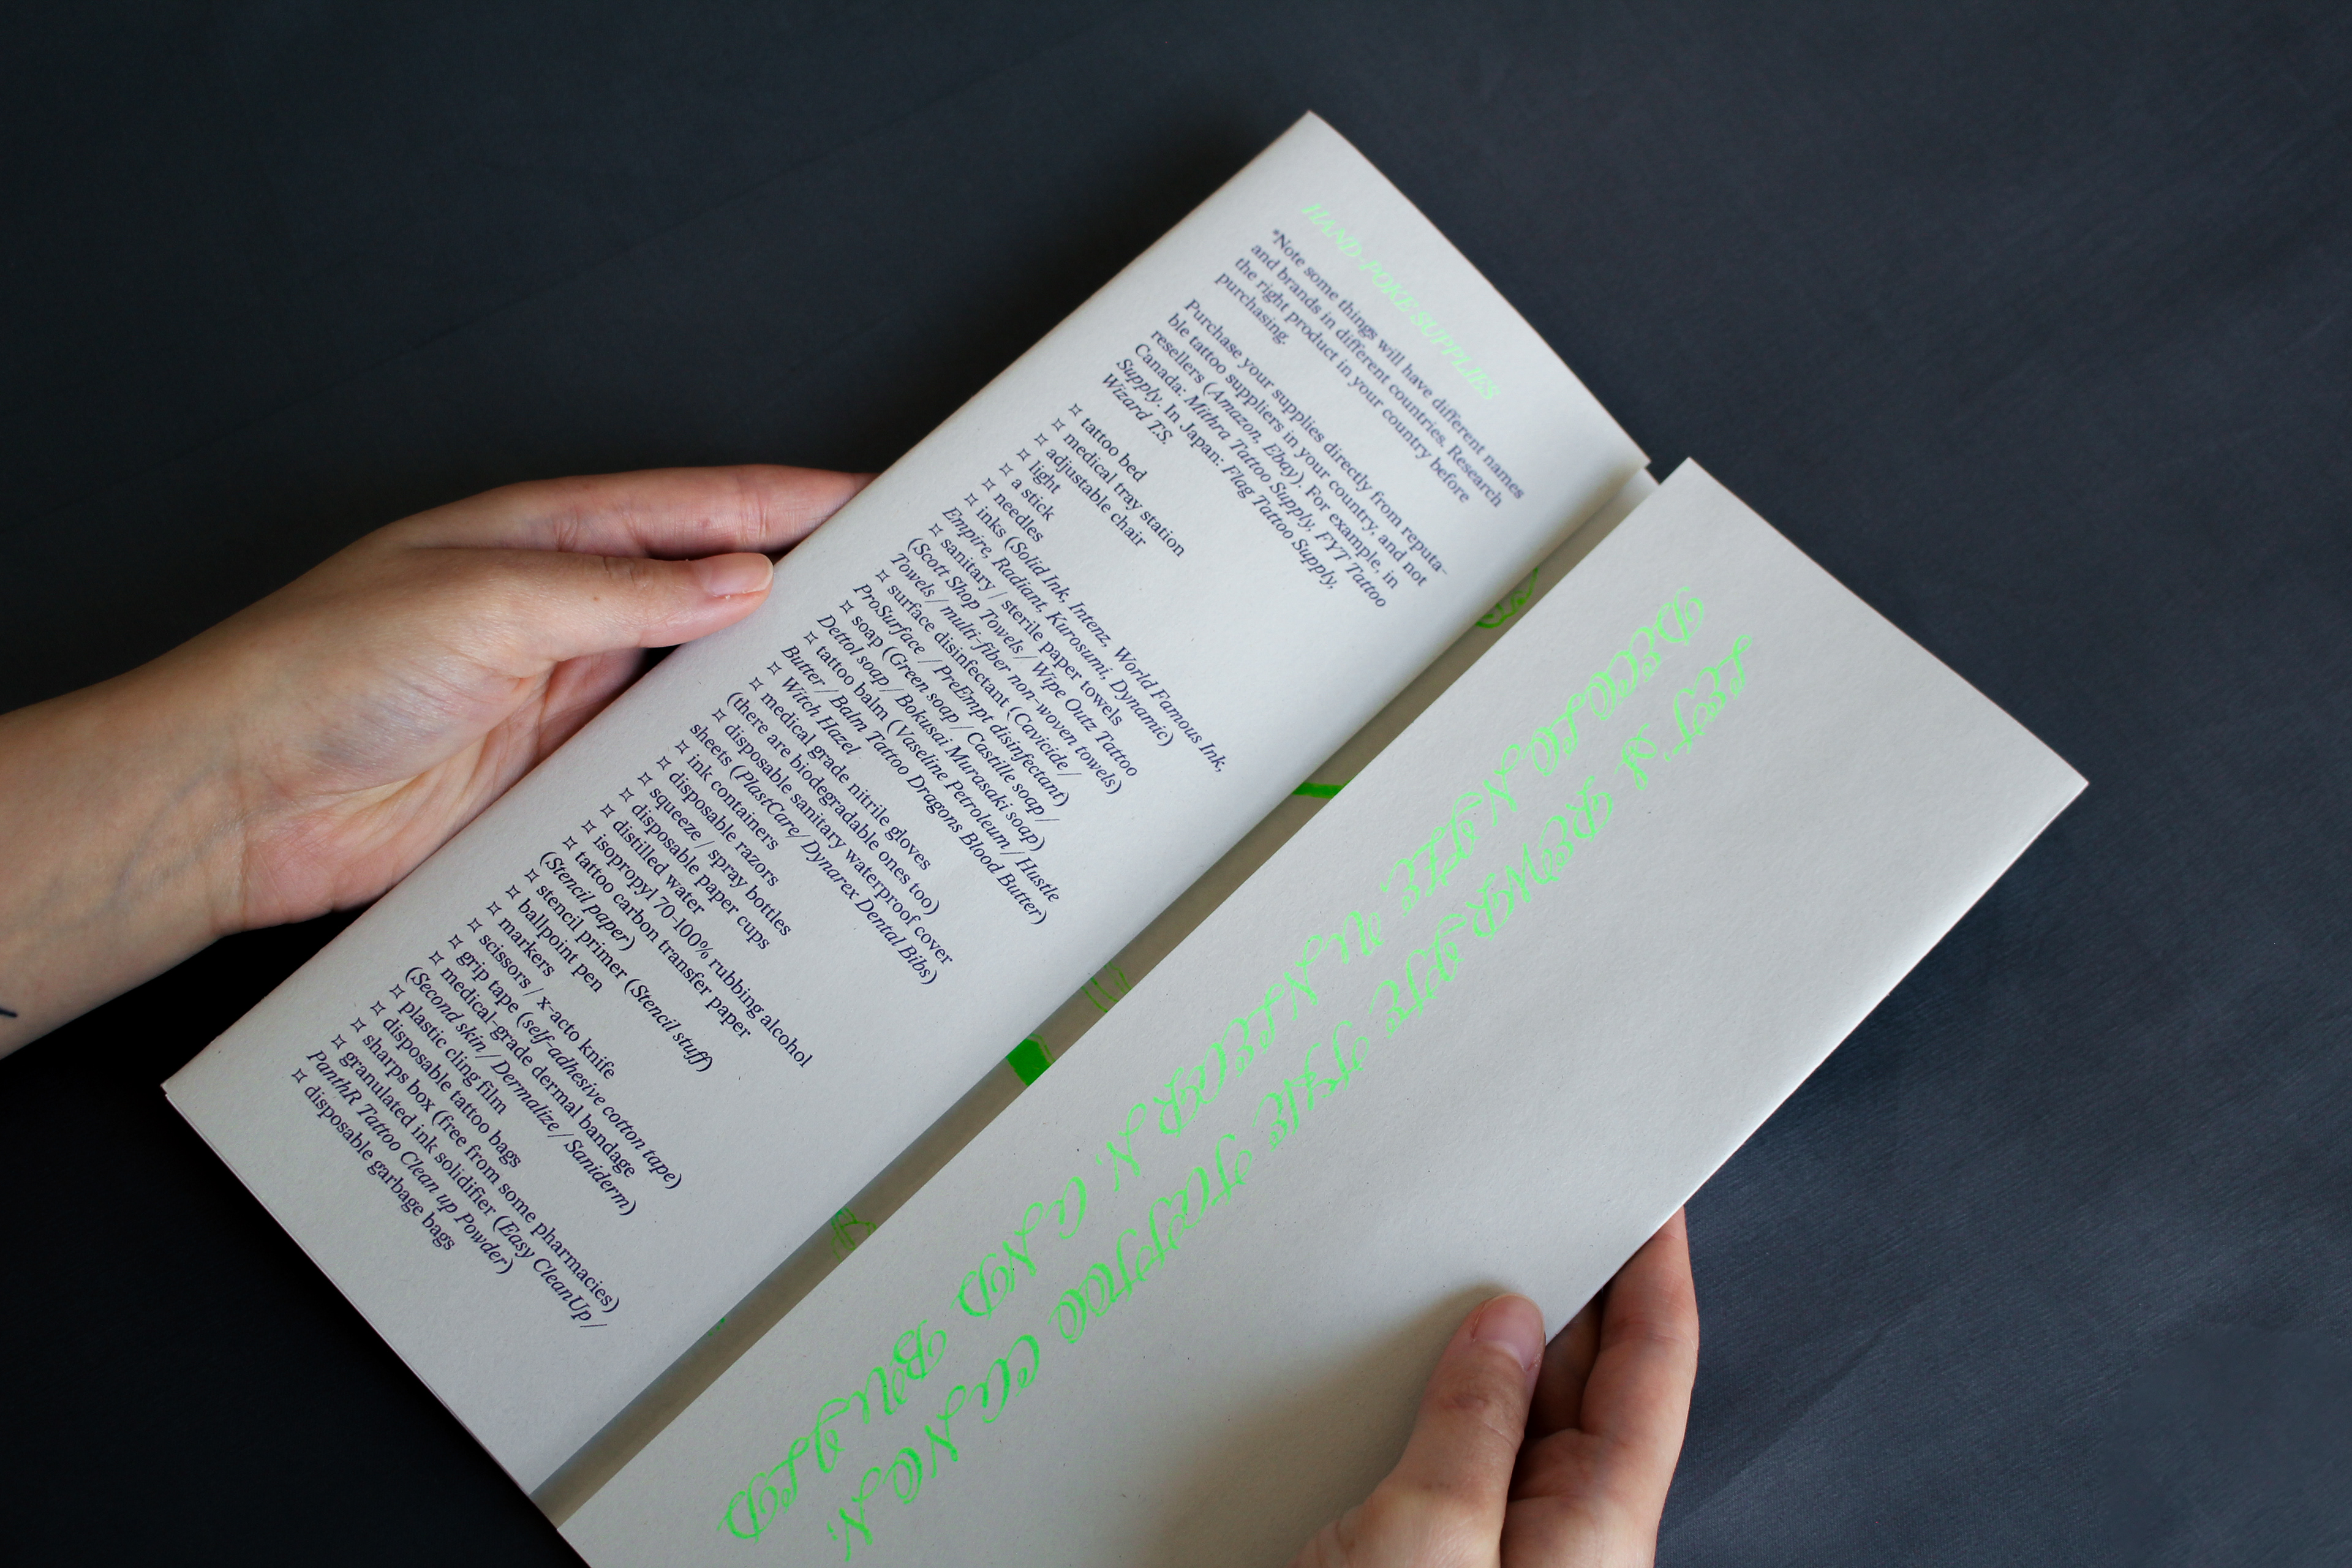 HAND-POKE SUPPLIES
*Note some things will have different names
and brands in different countries. Research
the right product in your country before
purchasing.
Purchase your supplies directly from reputa-
ble tattoo suppliers in your country, and not
resellers (Amazon, Ebay). For example, in
Canada: Mithra Tattoo Supply, FYT Tattoo
Supply. In Japan: Flag Tattoo Supply,
Wizard T.S.
✧ tattoo bed
✧ medical tray station
✧ adjustable chair
✧ light
✧ a stick
✧ needles
✧ inks (Solid Ink, Intenz, World Famous Ink,
Empire, Radiant, Kurosumi, Dynamic)
✧ sanitary / sterile paper towels
(Scott Shop Towels / Wipe Outz Tattoo
Towels / multi-fiber non-woven towels)
✧ surface disinfectant (Cavicide /
ProSurface / PreEmpt disinfectant)
✧ soap (Green soap / Castille soap /
Dettol soap / Bokusai Murasaki soap)
✧ tattoo balm (Vaseline Petroleum / Hustle
Butter / Balm Tattoo Dragons Blood Butter)
✧ Witch Hazel
✧ medical grade nitrile gloves
(there are biodegradable ones too)
✧ disposable sanitary waterproof cover
sheets (PlastCare / Dynarex Dental Bibs)
✧ ink containers
✧ disposable razors
✧ squeeze / spray bottles
✧ disposable paper cups
✧ distilled water
✧ isopropyl 70-100% rubbing alcohol
✧ tattoo carbon transfer paper
(Stencil paper)
✧ stencil primer (Stencil stuff)
✧ ballpoint pen
✧ markers
✧ scissors / x-acto knife
✧ grip tape (self-adhesive cotton tape)
✧ medical-grade dermal bandage
(Second skin / Dermalize / Saniderm)
✧ plastic cling film
✧ disposable tattoo bags
✧ sharps box (free from some pharmacies)
✧ granulated ink solidifier (Easy CleanUp /
PanthR Tattoo Clean up Powder)
✧ disposable garbage bags
LET'S REWRITE THE TATTOO CANON.
DECOLONIZE, UNLEARN, AND BUILD